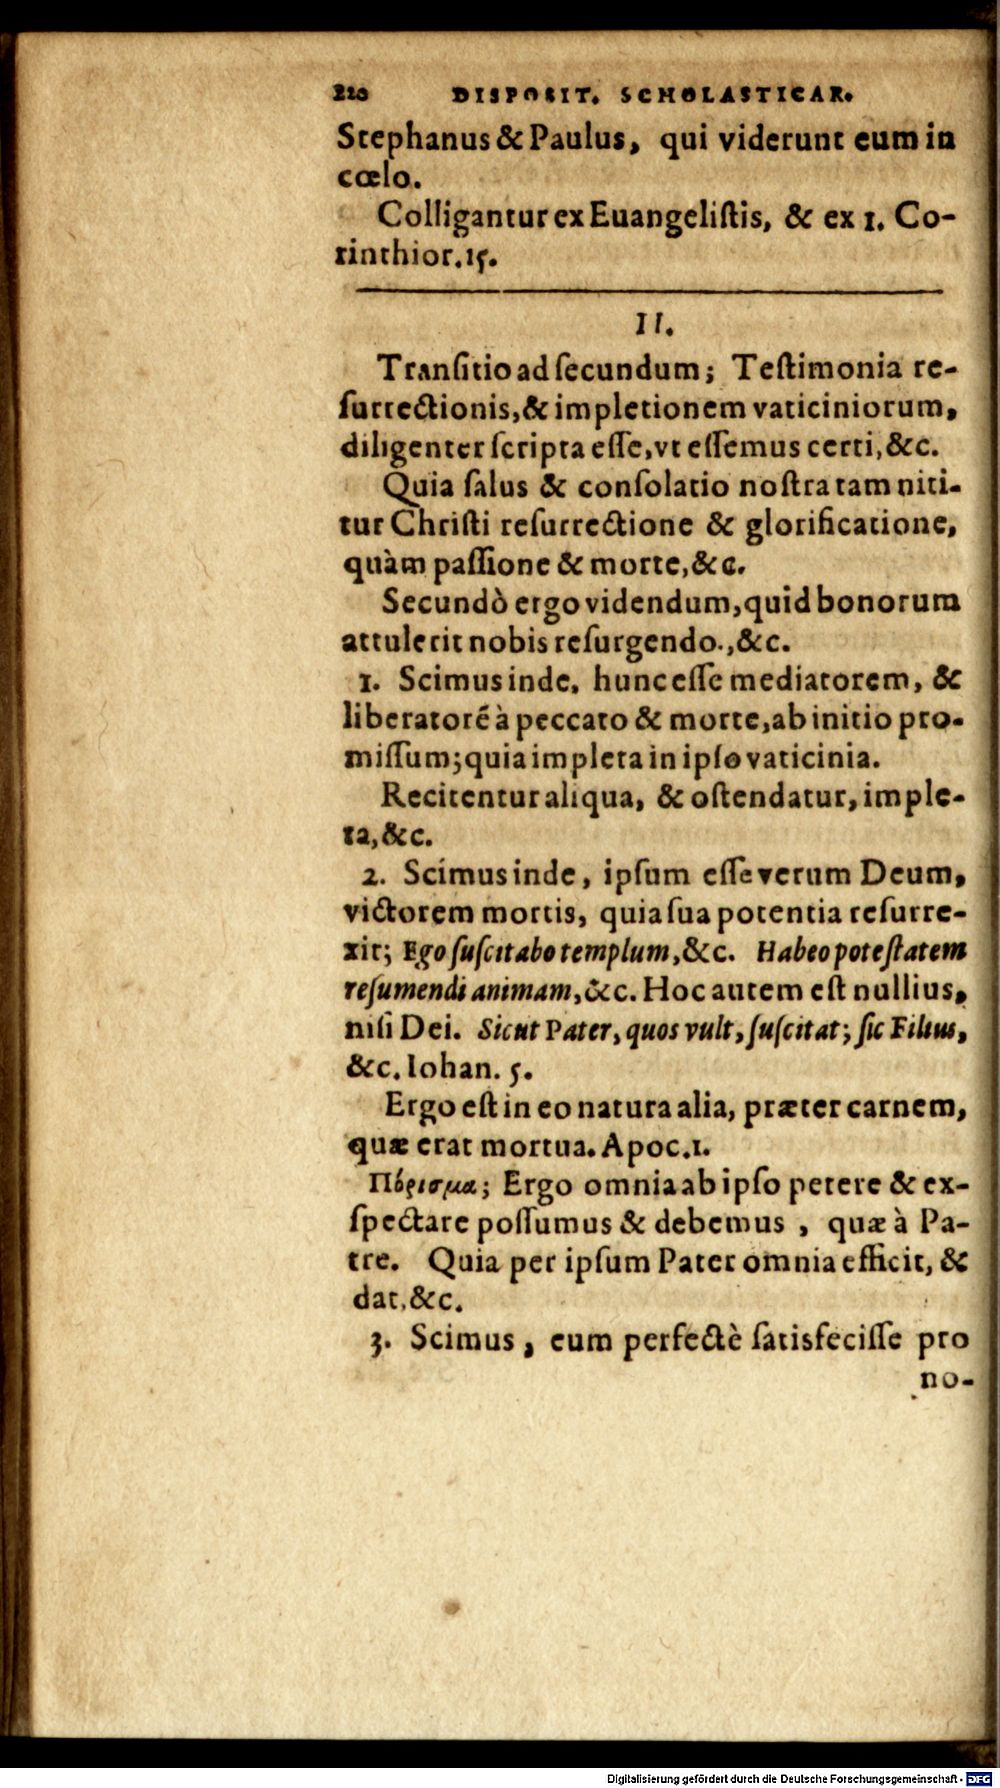 220 DISPOSIT. SCHOLASTICAR.
Stephanus & Paulus, qui viderunt eum in
cœlo.
Colligantur ex Euangeliſtis, & ex 1. Co-
rinthior. 15.
II.
Tranſitio ad ſecundum; Teſtimonia re-
ſurrectionis, & impletionem vaticiniorum,
diligenter ſcripta eſſe, vt eſſemus certi, &c.
Quia ſalus & conſolatio noſtra tam niti-
tur Chriſti reſurrectione & glorificatione,
quàm paſſione & morte, &c.
Secundò ergo videndum, quid bonorum
attulerit nobis reſurgendo., &c.
1. Scimus inde, hunc eſſe mediatorem, &
liberatorẽ à peccato & morte, ab initio pro-
miſſum; quia impleta in ipſo vaticinia.
Recitentur aliqua, & oſtendatur, imple-
ta, &c.
2. Scimus inde, ipſum eſſe verum Deum,
victorem mortis, quia ſua potentia reſurre-
xit; Ego ſuſcitabo templum, &c. Habeo poteſtatem
reſumendi animam, &c. Hoc autem eſt nullius,
niſi Dei. Sicut Pater, quos vult, ſuſcitat; ſic Filius,
&c. Iohan. 5.
Ergo eſt in eo natura alia, præter carnem,
quæ erat mortua. Apoc. 1.
Πόρισμα; Ergo omnia ab ipſo petere & ex-
ſpectare poſſumus & debemus, quæ à Pa-
tre. Quia per ipſum Pater omnia efficit, &
dat, &c.
3. Scimus, eum perfectè ſatisfeciſſe pro
no-
Digitalisierung gefördert durch die Deutsche Forschungsgemeinschaft - DFG